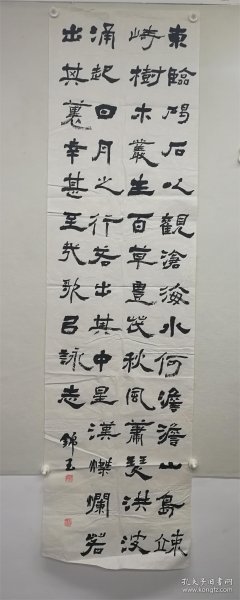 東臨碣石以觀滄海水何澹澹山島竦
峙樹木叢生百草豊茂秋風蕭瑟洪波
涌起日月之行若出其中星漢燦爛若
出其裏幸甚至哉歌㠯詠志
錦玉
孔夫子旧书网